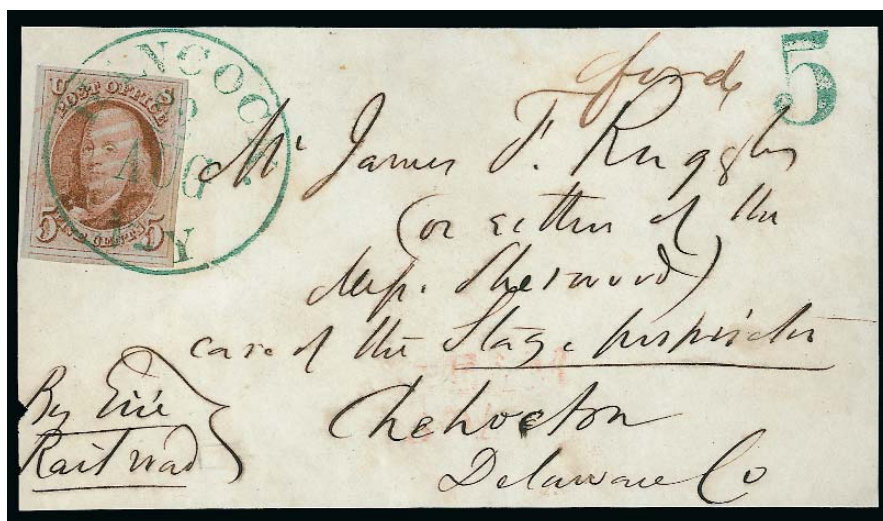 HANCOCK
AUG
N Y
POST OFFICE
5 FIVE CENTS 5
5
Mr James F. Ruggles
(or either of the
Mess. Sherwood)
care of the Stage proprietor
Chehocton
Delaware Co
By Erie
Railroad